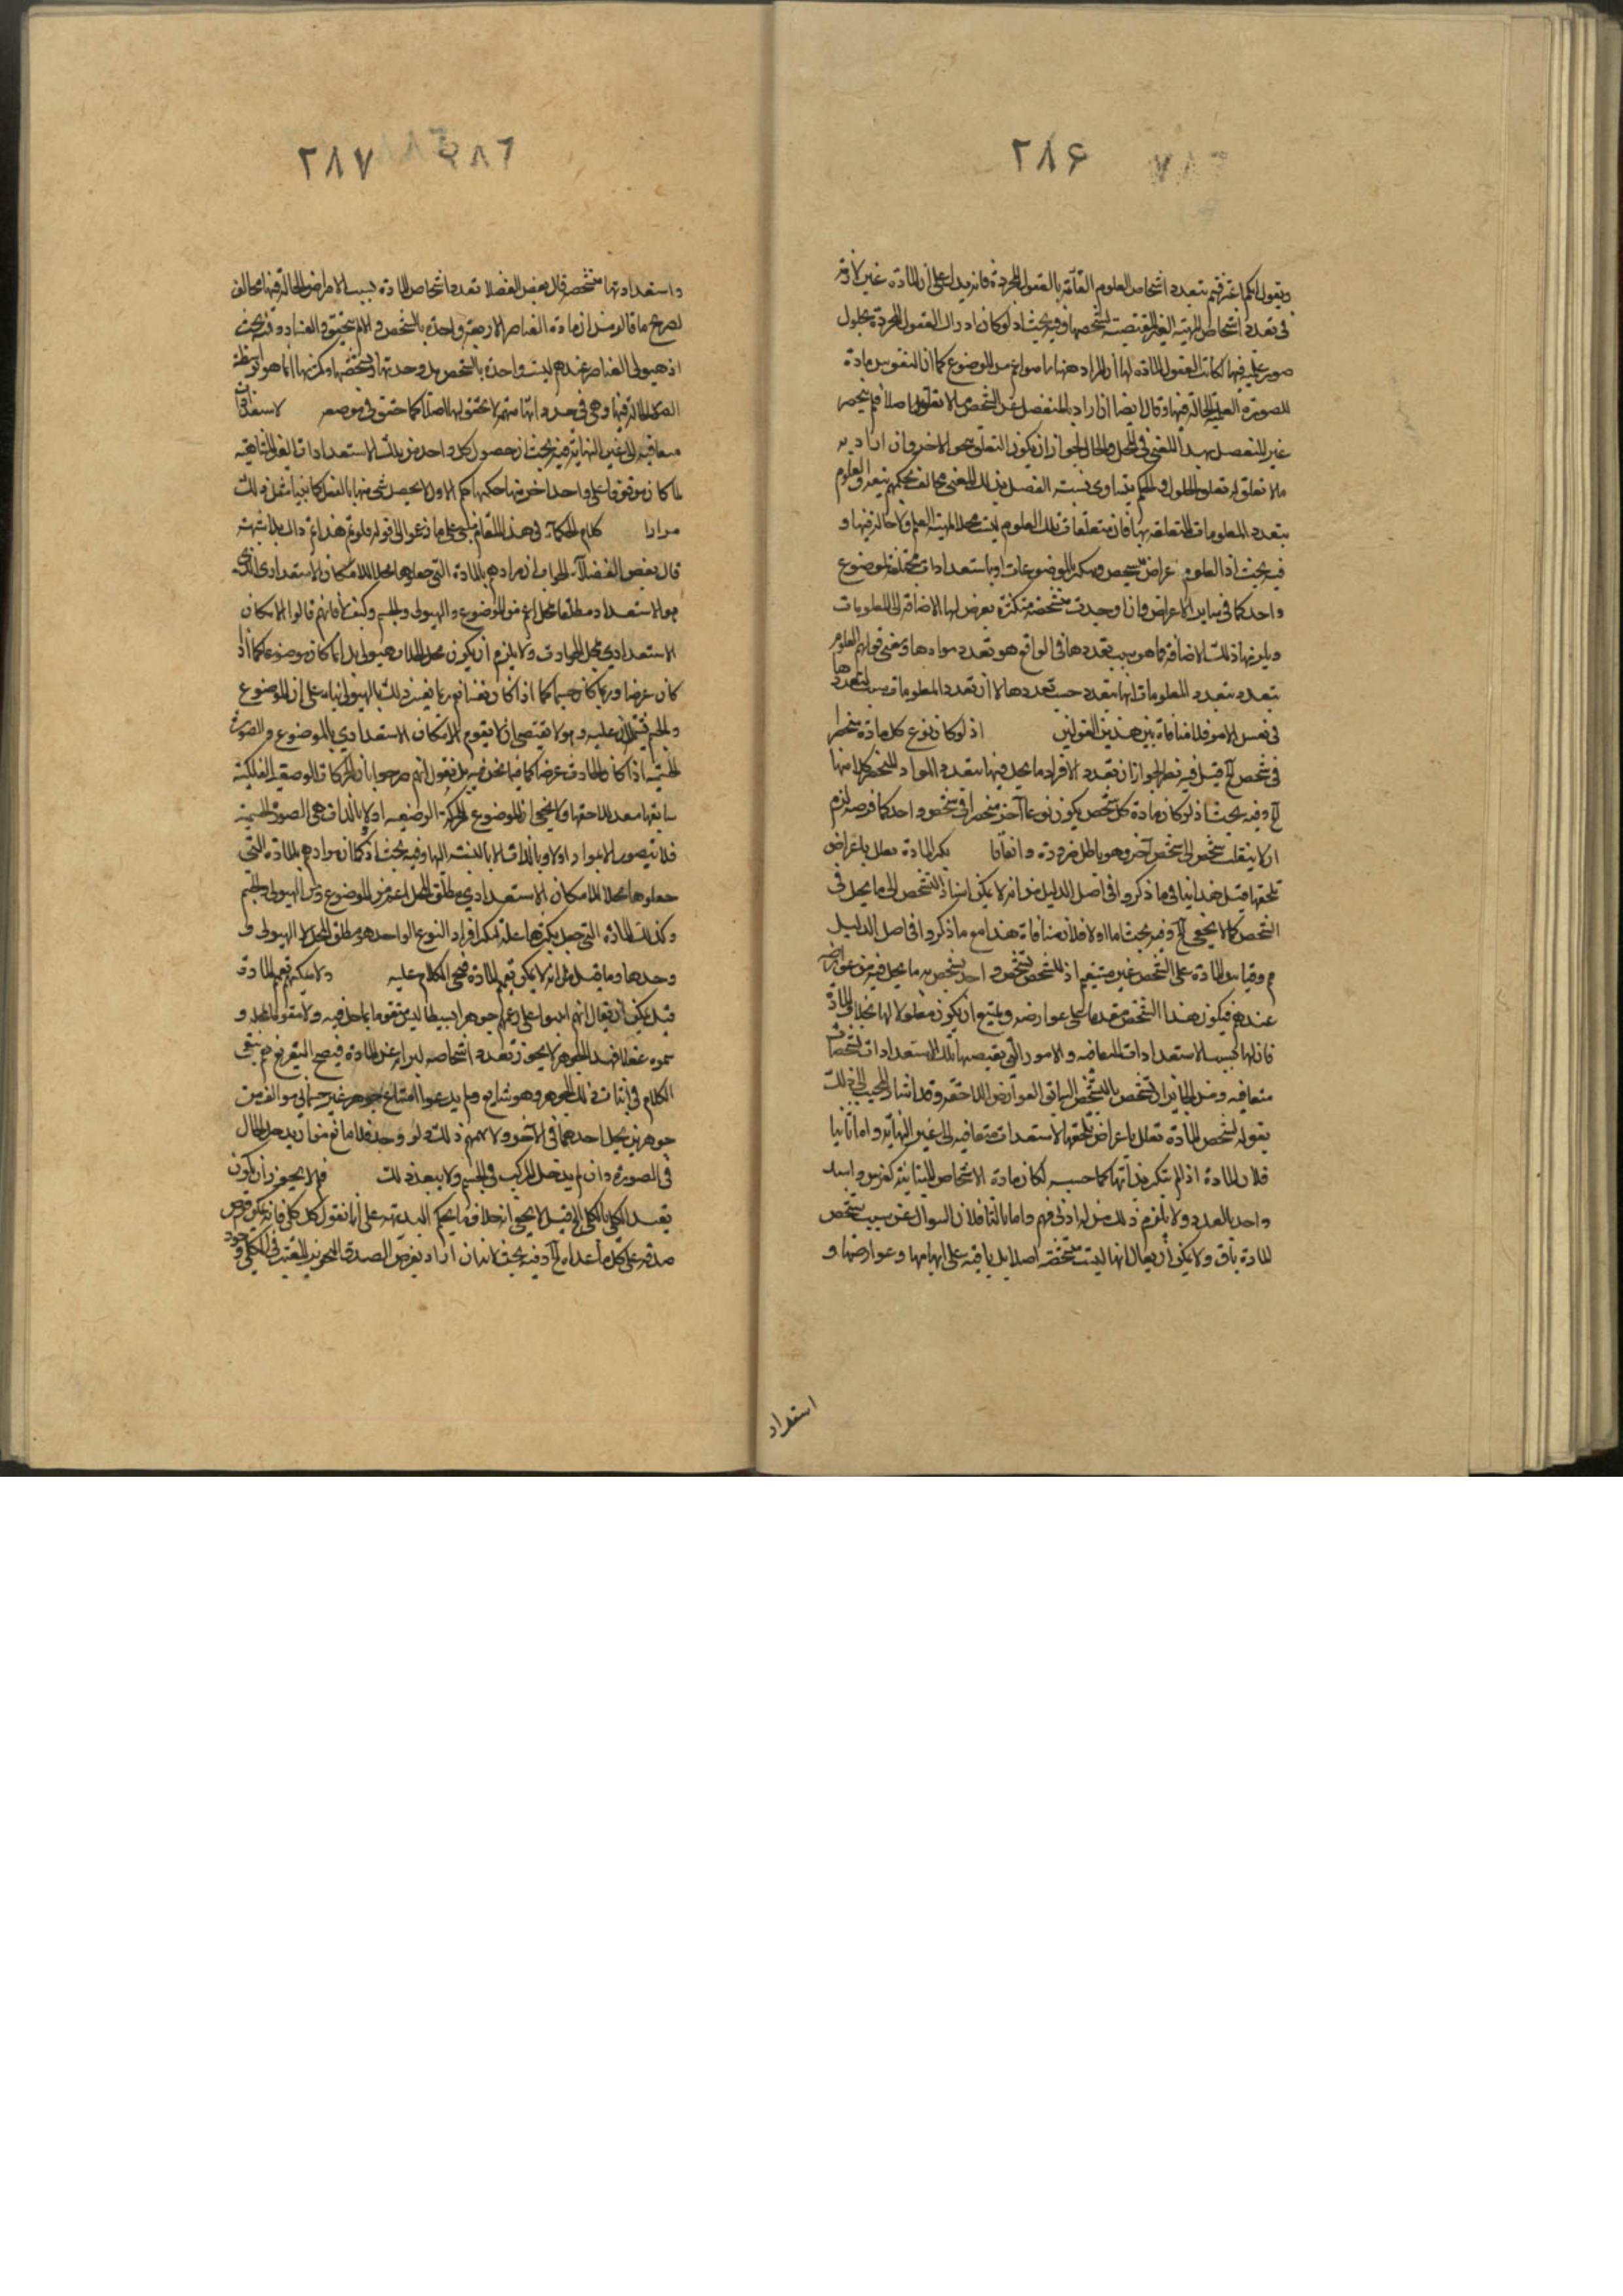 ۲۸۶
ويقول انكم اعترفتم بتعدد اشخاص العلوم القائمة بالعقول المجردة فانه يدل على ان المادة غير لازمة
فى تعدد اشخاص المهية الغير المقتضية لتشخصها وفيه بحث اذ لو كان ادراك العقول المجردة بحلول
صور علمية فيها كانت العقول المادة لها اذ المراد ههنا ما هو اعم من الموضوع كما ان النفوس مادة
للصورة العلمية الحالة فيها وقال ايضا ان اراد بالمنفصل عن الشخص ما لا تعلق له اصلا فلم ينحصر
غير المنفصل بهذا المعنى فى المحل والحال لجواز ان يكون التعلق بنحو الاخر وان اراد به
ما لا تعلق له تعلق الحلول فالحكم بتساوى نسبة المنفصل بذلك المعنى مخالف لحكمهم بتعدد العلوم
بتعدد المعلومات المتعلقة بها فان متعلقات تلك العلوم ليست محلا لمهية العلم ولا حالة فيها و
فيه بحث اذ العلوم اعراض تتشخص وتتكثر بالموضوعات او باستعدادات مختلفة لموضوع
واحد كما فى ساير الاعراض وان وجدت متشخصة متكثرة يعرض لها الاضافة الى المعلومات
ويلزمها تلك الاضافة فما هو سبب تعددها فى الواقع هو تعدد موادها ومعنى قولهم العلوم
تتعدد بتعدد المعلومات انها تتعدد حسب تعددها لا ان تعدد المعلومات سبب لتعددها
فى نفس الامر فلا منافاة بين هذين القولين اذ لو كان نوع كل مادة منحصرا
فى شخص الخ قيل فيه نظر لجواز ان تعدد الافراد ما يحل فيها بتعدد المواد المنحصر كل منها
الخ وفيه بحث اذ لو كان مادة كل شخص يكون نوعا آخر منحصرا فى شخص واحد كما فرضه لزم
ان لا ينقلب شخص الى شخص آخر وهو باطل ضرورة واتفاقا تكثر المادة معلل باعراض
تلحقها قيل هذا ينافى ما ذكروا فى اصل الدليل من انه لا يمكن استناد التشخص الى ما يحل فى
الشخص كما لا يخفى الخ وفيه بحث اما اولا فلان منافاة هذا مع ما ذكروا فى اصل الدليل
م وقياس المادة على الشخص غير مستقيم اذ للشخص تشخص واحد يشخص به ما يحل فيه من عوارضه
عندهم فيكون هذا الشخص مقدما على عوارضه ويمتنع ان يكون معلولا لها بخلاف المادة
فان لها بحسب الاستعدادات المتعاقبة والامور التى تقتضيها تلك الاستعدادات تشخصات
متعاقبة ومن الجايز ان تشخص بالتشخص السابق العوارض اللاحقة وقد اشار المجيب الى ذلك
بقوله تشخص المادة تعلل باعراض تلحقها لاستعدادات متعاقبة الى غير النهاية واما ثانيا
فلان المادة اذا لم تتكثر بذاتها كما حسبه لكان مادة الاشخاص المتباينة كفرس واسد
واحد بالعدد ولا يلزم ذلك من له ادنى فهم واما ثالثا فلان السوال عن سبب تشخص
المادة باق ولا يمكن ان يقال انها ليست متشخصة اصلا بل باقية على ابهامها وعوارضها و
استعداد
۲۸۷
واستعدادتها متشخصة قال بعض الفضلا تعدد اشخاص المادة بسبب الاعراض الحالة فيها مخالف
لصريح ما قالوا من ان مادة العناصر الاربعة واحدة بالشخص والام يتحقق والعناد وفيه بحث
اذ هيولى العناصر عندهم ليست واحدة بالشخص بل وحدتها وتشخصها وتكثرها انما هو بواسطة
الصور الحالة فيها وهى فى حد ذاتها مبهم لا تحقق لها اصلا كما حقق فى موضعه لاستعدادات
متعاقبة الى غير النهاية فيه بحث ان حصول كل واحد من تلك الاستعدادات الغير المتناهية
لما كان موقوفا على واحد اخر منها حكمها حكم الاول لا يحصل شى منها بالفعل كما بينا مثل ذلك
مرارا كلام الحكماء فى هذا المقام مبنى على ما زعموا الى قوله فلو تم هذا تم ذاك بلا شبهة
قال بعض الفضلاء الجواب ان مرادهم بالمادة التى جعلوها محلا للامكان الاستعدادى الذى
هو الاستعداد مطلقا محل اعم من الموضوع والهيولى والجسم وكيف لا فانهم قالوا الامكان
الاستعدادى محل الحوادث ولا يلزم ان يكون محل الحادث هيولى بل انما كان موضوعا كما اذا
كان عرضا وربما كان جسما كما اذا كان نفسا نعم ربما يفسر ذلك بالهيولى بناء على ان الموضوع
والجسم يشتملان عليه وهو لا يقتضى ان لا يقوم الامكان الاستعدادى بالموضوع والصورة
الجسمية اذا كان الحادث عرضا كما فيما نحن فيه بل نقول انهم صرحوا بان الحركات الوضعية الفلكية
سابقها معد للاحقها ولا يخفى ان الموضوع للحركة الوضعية اولا بالذات هى الصورة الجسمية
فلا يتصور الاعداد اولا وبالذات الا بالنسبة اليها وفيه بحث اذ كما ان مرادهم بالمادة التى
جعلوها محلا للامكان الاستعدادى مطلق المحل اعم من الموضوع ومن الهيولى والجسم
وكذلك المادة التى جعل تكثرها علة لتكثر افراد النوع الواحد هو مطلق المحل لا الهيولى و
وحدها وما قيل من انه لا يمكن تعميم المادة فسيجى الكلام عليه ولا يمكنهم تعميم المادة
قيل يمكن ان يقال انهم اثبتوا على زعمهم جوهرا بسيطا ليس متقوما بما حل فيه ولا مقوما لمحله و
سموه عقلا فهذا الجوهر لا يجوز تعدد اشخاصه لبراءته عن المادة فيصح التفريع نعم بقى
الكلام فى اثبات ذلك الجوهر وهو شايع ولم يدعوا امتناع جوهر غير جسمانى مولف من
جوهرين يحل احدهما فى الآخر ولا يهمهم ذلك ولو وجد فلا مانع من ان يدخل الحال
فى الصورة وان لم يدخل المركب فى الجسم ولا يبعد ذلك فلم لا يجوز ان يكون
تقييد الكلى بالكلى الخ قيل لا يخفى انه خلاف ما يحكم البديهة على انا نقول كل كلى فانه يمكن فرض
صدقه على كل ما عداه الخ وفيه بحث لانه ان اراد بفرض الصدق التجويز المعتبر فى الكلى وجود